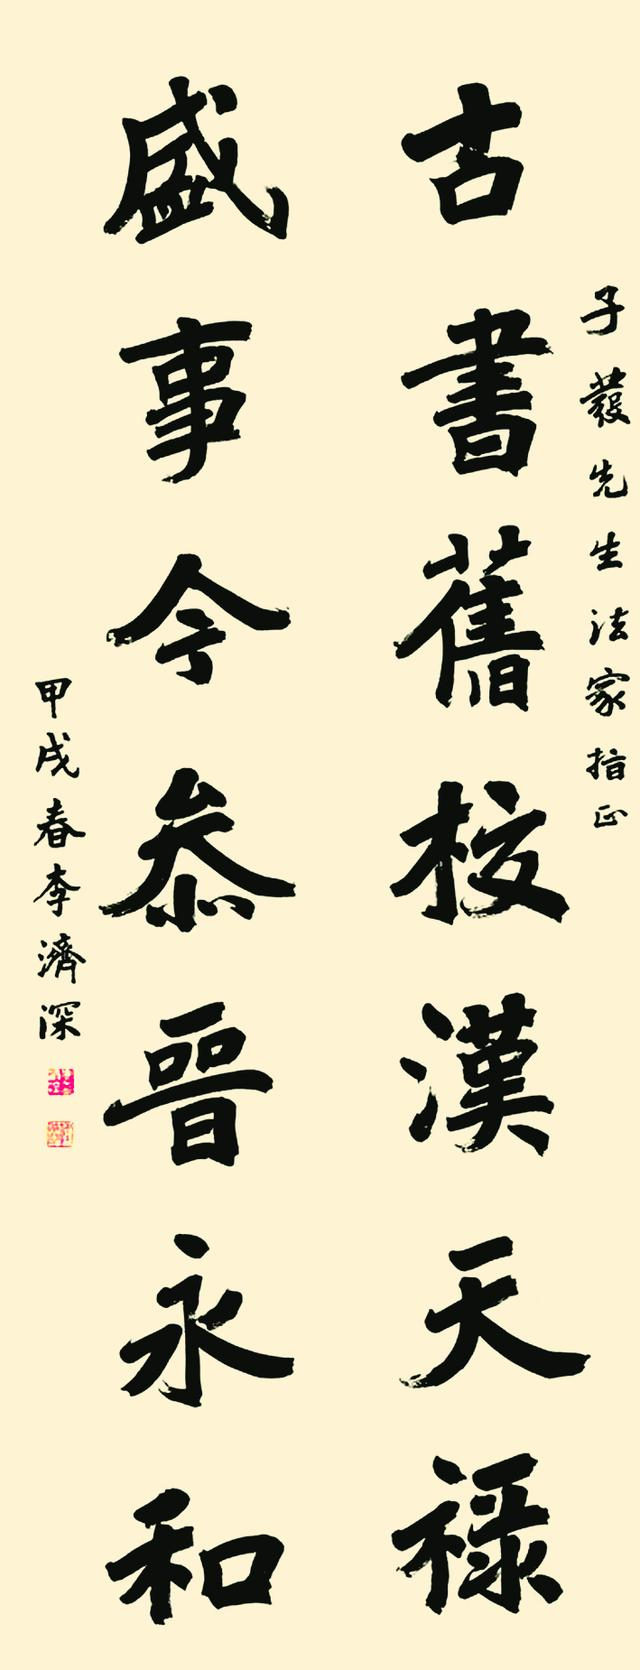 子發先生法家指正
古書舊校漢天祿
盛事今叅晉永和
甲戌春李濟深